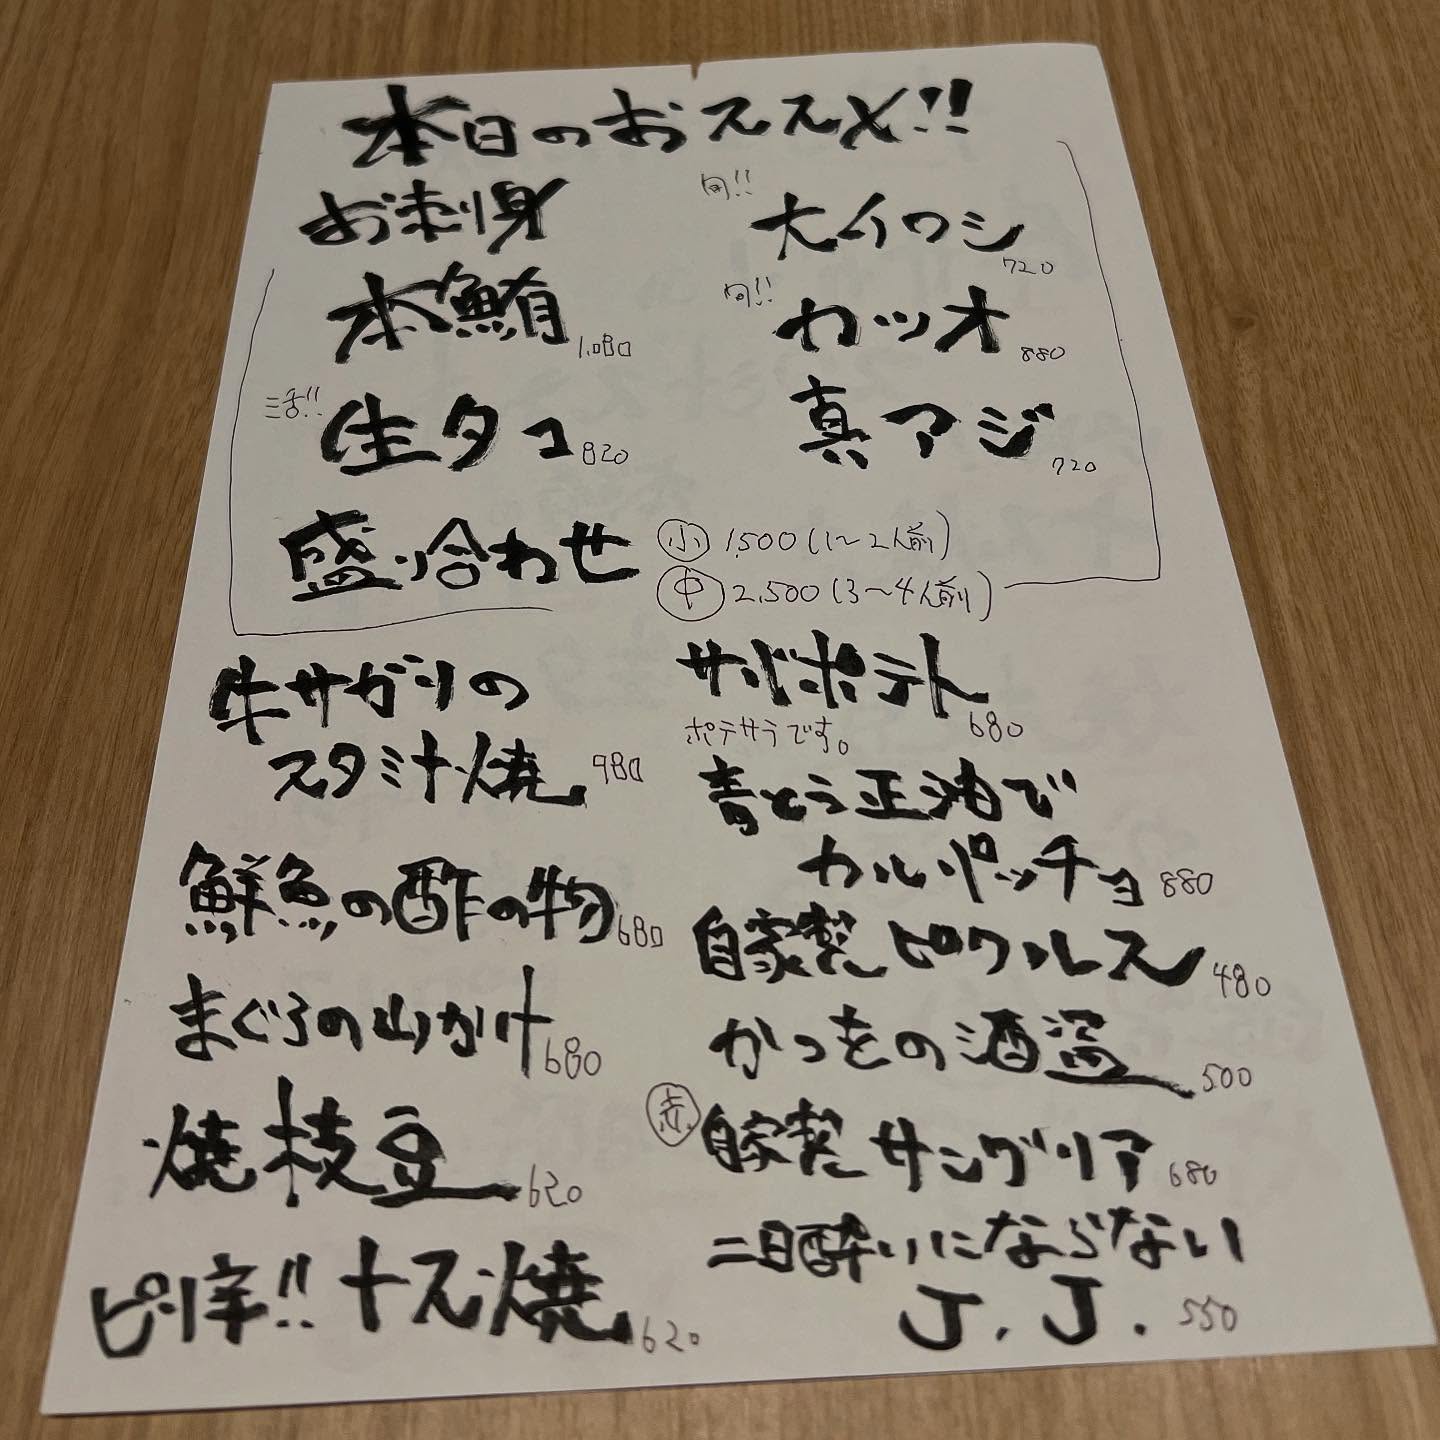 本日のおススメ!!
お刺身
本鮪 1,080
活!! 生タコ 820
旬!! 大イワシ 720
旬!! カツオ 880
真アジ 720
盛り合わせ 小 1,500 (1〜2人前)
中 2,500 (3〜4人前)
牛サガリの
スタミナ焼 980
鮮魚の酢の物 680
まぐろの山かけ 680
焼枝豆 620
ピリ辛!! ナス焼 620
サバポテト 680
ポテサラです。
青とう正油で
カルパッチョ 880
自家製ピクルス 480
かつをの酒盗 500
赤 自家製サングリア 680
二日酔いにならない
J.J. 550